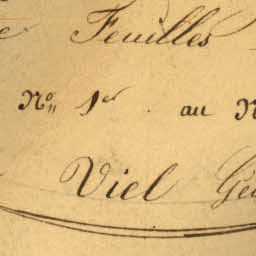 Feuilles
Nº 1er. au N
Viel Ge